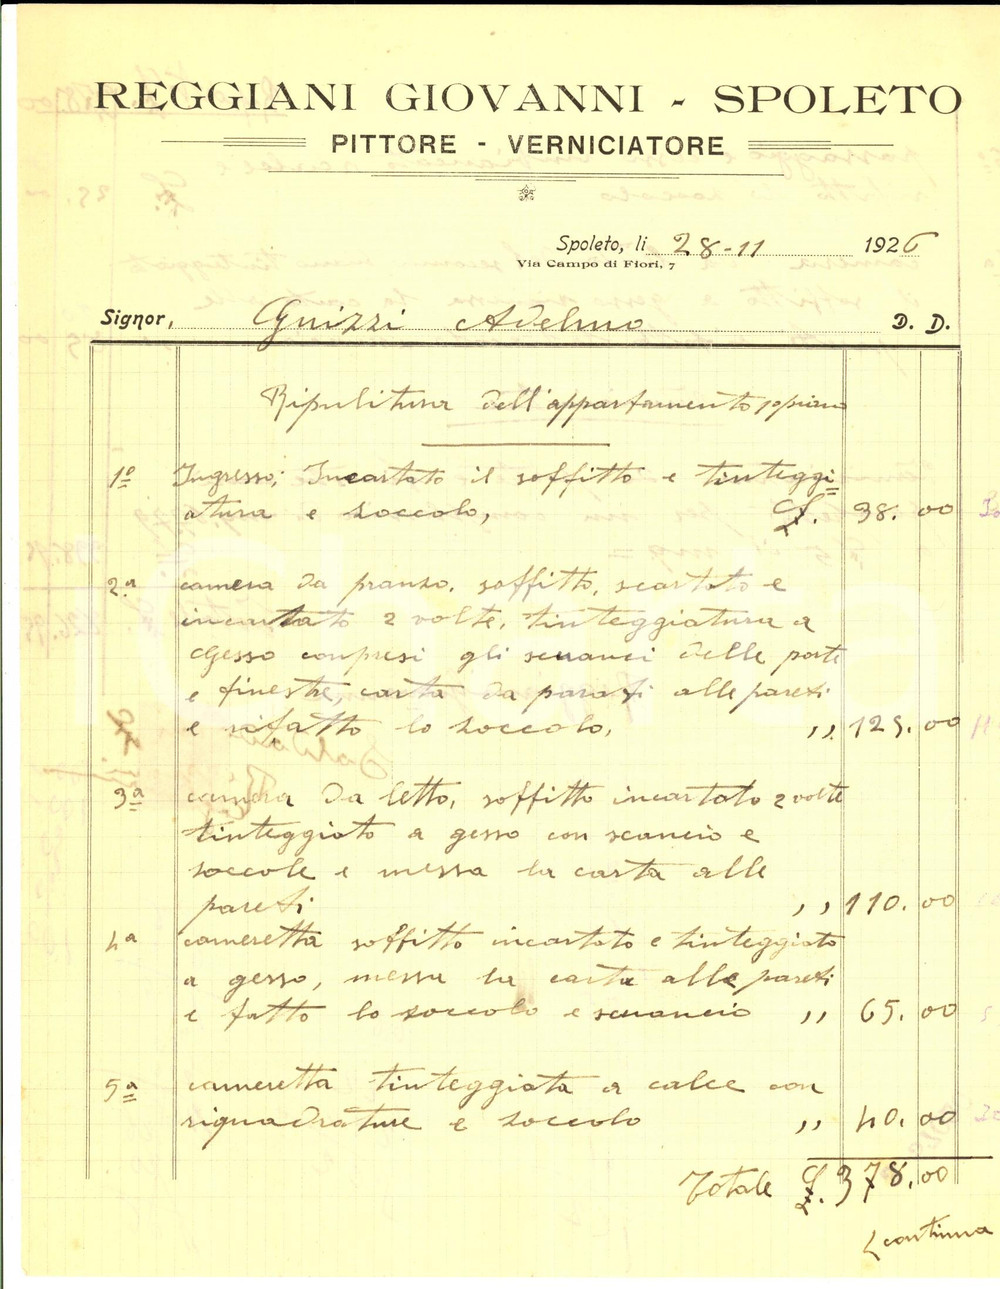 REGGIANI GIOVANNI - SPOLETO
PITTORE - VERNICIATORE
Spoleto, li 28-11 1926
Via Campo di Fiori, 7
Signor, Gnizzi Adelmo D. D.
Ripulitura dell'appartamento 1º piano
1º Ingresso; Incartato il soffitto e tinteggi=
atura e zoccolo, £. 38. 00
2ª camera da pranzo, soffitto, scartato e
incartato 2 volte, tinteggiatura a
Gesso conpresi gli scuanci delle porte
e finestre, carta da parati alle pareti
e rifatto lo zoccolo, ,, 125. 00
3ª camera da letto, soffitto incartato 2 volte
tinteggiato a gesso con scancio e
zoccole e messa la carta alle
pareti ,, 110. 00
4ª cameretta soffitto incartato e tinteggiato
a gesso, messa la carta alle pareti
e fatto lo zoccolo e scuancio ,, 65. 00
5ª cameretta tinteggiata a calce con
riquadrature e zoccolo ,, 40. 00
Totale £. 378. 00
continua